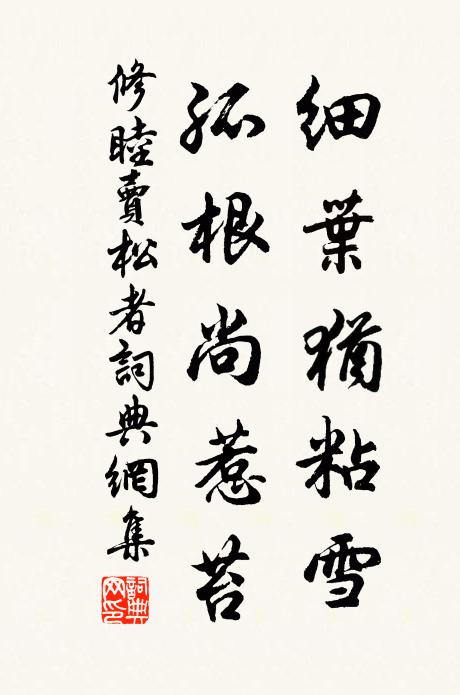 細葉猶粘雪
孤根尚惹苔
修睦賣松者詞典網集
詞典網印